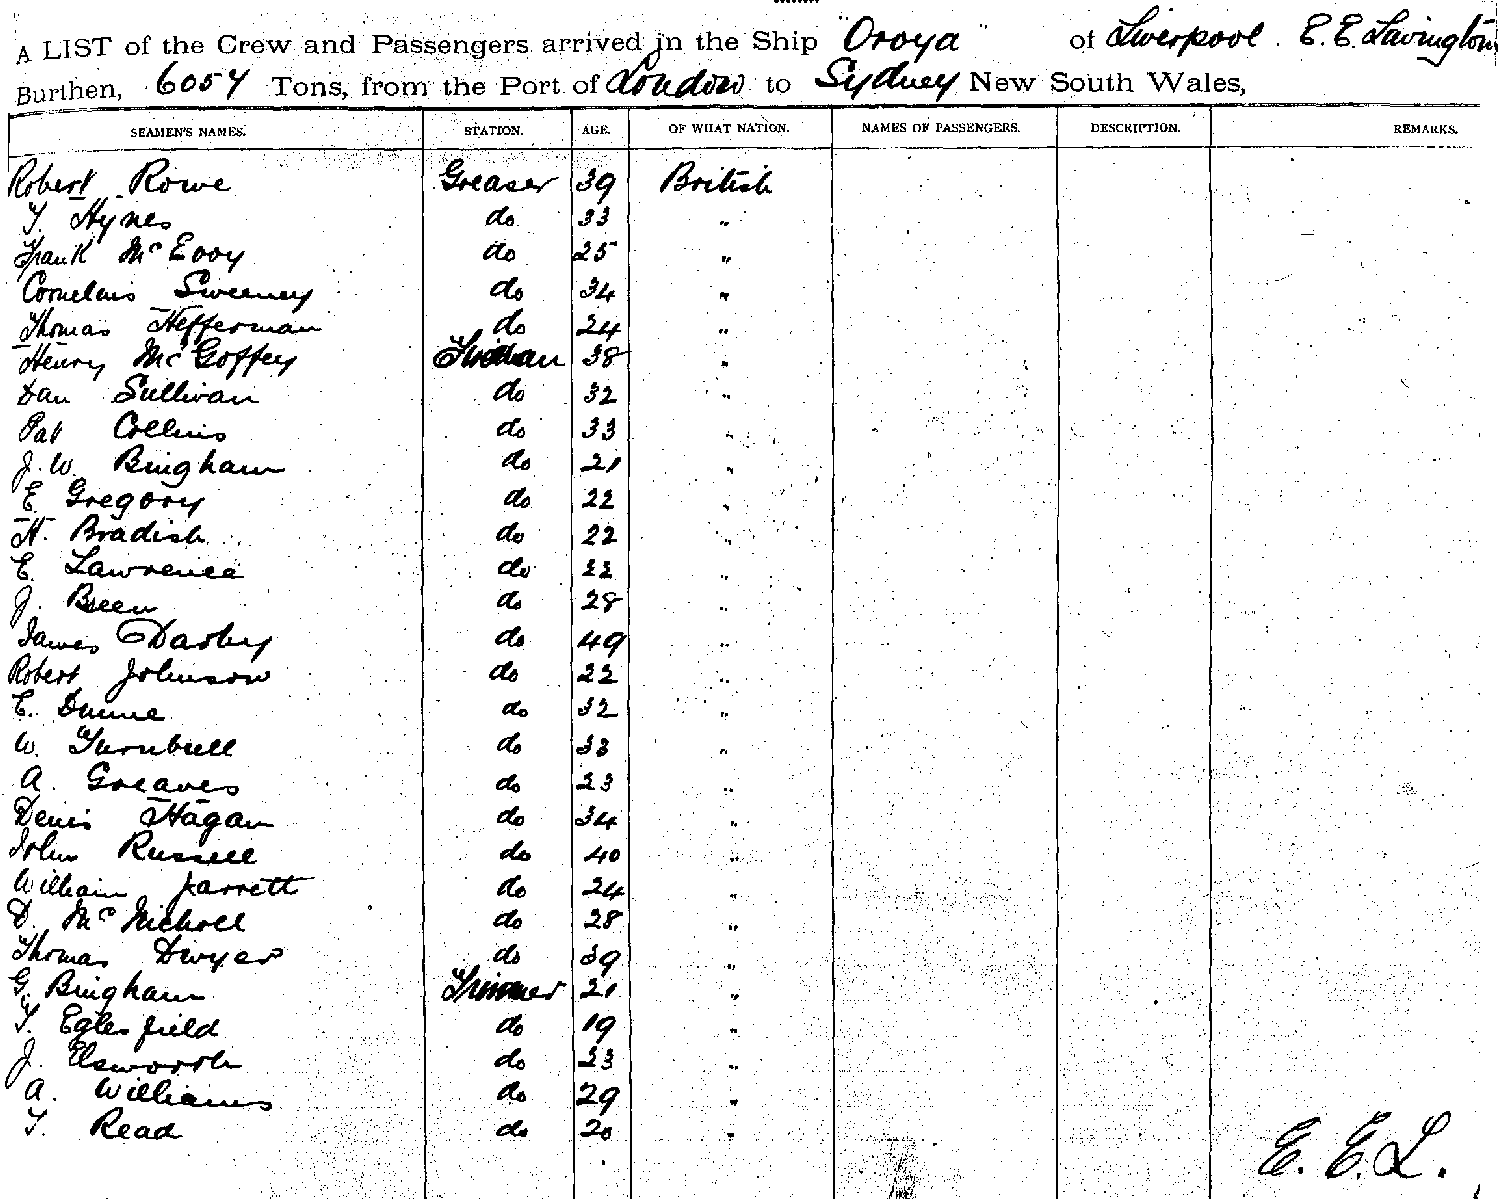 A LIST of the Crew and Passengers arrived in the Ship "Oroya" of Liverpool. E. E. Lavington
Burthen, 6057 Tons, from the Port of London to Sydney New South Wales,
SEAMEN'S NAMES. STATION. AGE. OF WHAT NATION. NAMES OF PASSENGERS. DESCRIPTION. REMARKS.
Robert Rowe Greaser 39 British
T. Hynes do 33 "
Frank McEvoy do 25 "
Cornelius Sweeney do 34 "
Thomas Hefferman do 24 "
Henry McGoffey Fireman 38 "
Dan Sullivan do 32 "
Pat Collins do 33 "
J. W. Bingham do 21 "
E. Gregory do 22 "
H. Bradish do 22 "
E. Lawrence do 22 "
J. Breen do 28 "
James Darby do 49 "
Robert Johnson do 22 "
E. Dunne do 32 "
W. Turnbull do 33 "
A. Greaves do 23 "
Denis Hagan do 34 "
John Russell do 40 "
William Jarrett do 24 "
D. McNicholl do 28 "
Thomas Dwyer do 39 "
G. Bingham Trimmer 21 "
T. Eglesfield do 19 "
J. Elsworth do 23 "
A. Williams do 29 "
T. Read do 20 "
E. E. L.